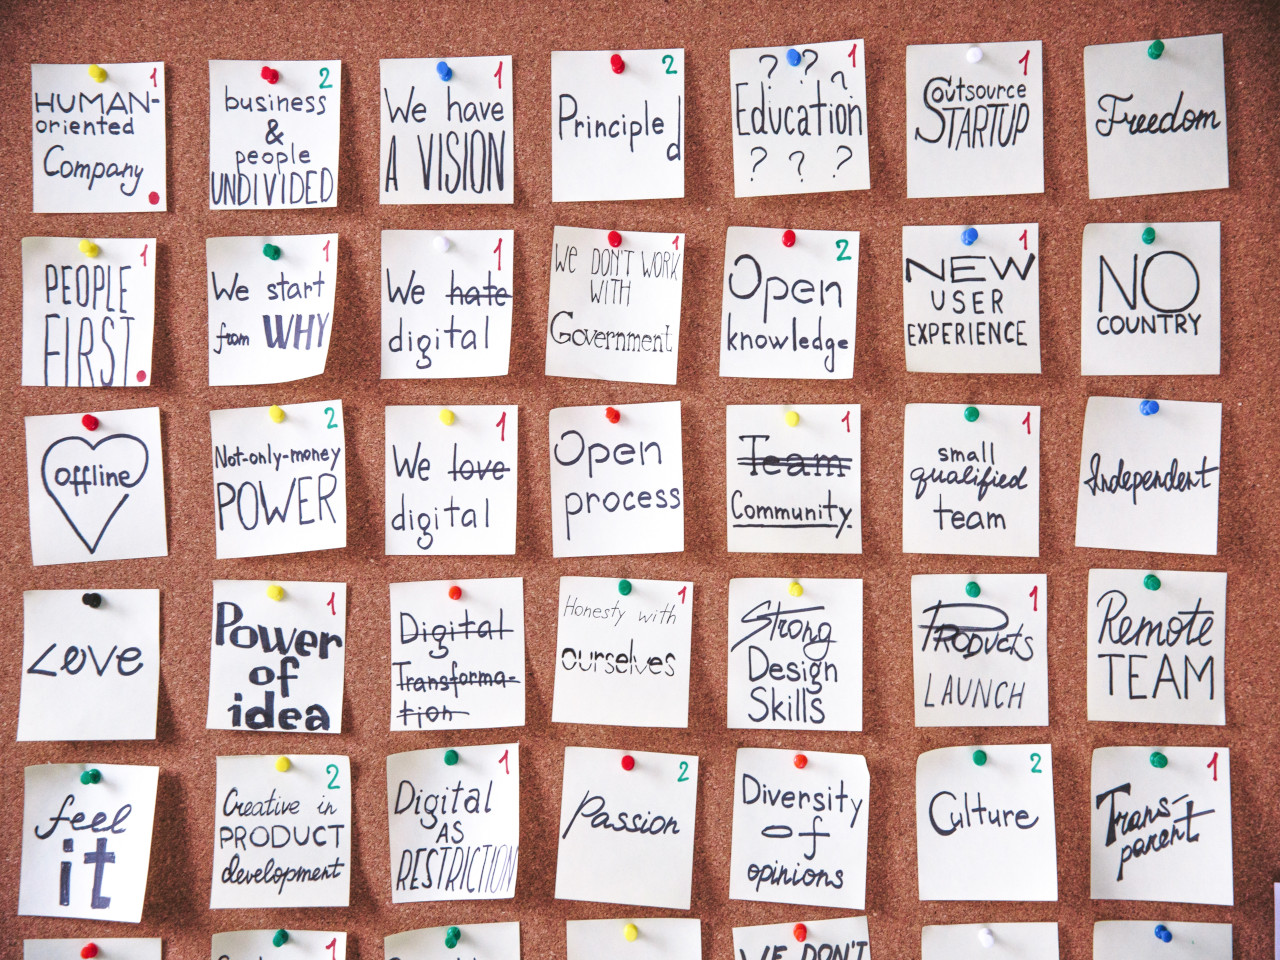 1
HUMAN-
oriented
Company
2
business
&
people
UNDIVIDED
1
We have
A VISION
2
Principle
d
1
? ? ?
Education
? ? ?
1
Outsource
STARTUP
Freedom
1
PEOPLE
FIRST
1
We start
from WHY
1
We hate
digital
1
We DON'T WORK
WITH
Government
2
Open
knowledge
1
NEW
USER
EXPERIENCE
NO
COUNTRY
offline
2
Not-only-money
POWER
1
We love
digital
Open
process
1
Team
Community.
1
small
qualified
team
Independent
Love
1
Power
of
idea
Digital
Transforma-
tion
1
Honesty with
ourselves
Strong
Design
Skills
1
PRODUCTS
LAUNCH
Remote
TEAM
feel
it
2
Creative in
PRODUCT
development
1
Digital
AS
RESTRICTION
2
Passion
Diversity
of
opinions
2
Culture
1
Trans-
parent
1
WE DON'T